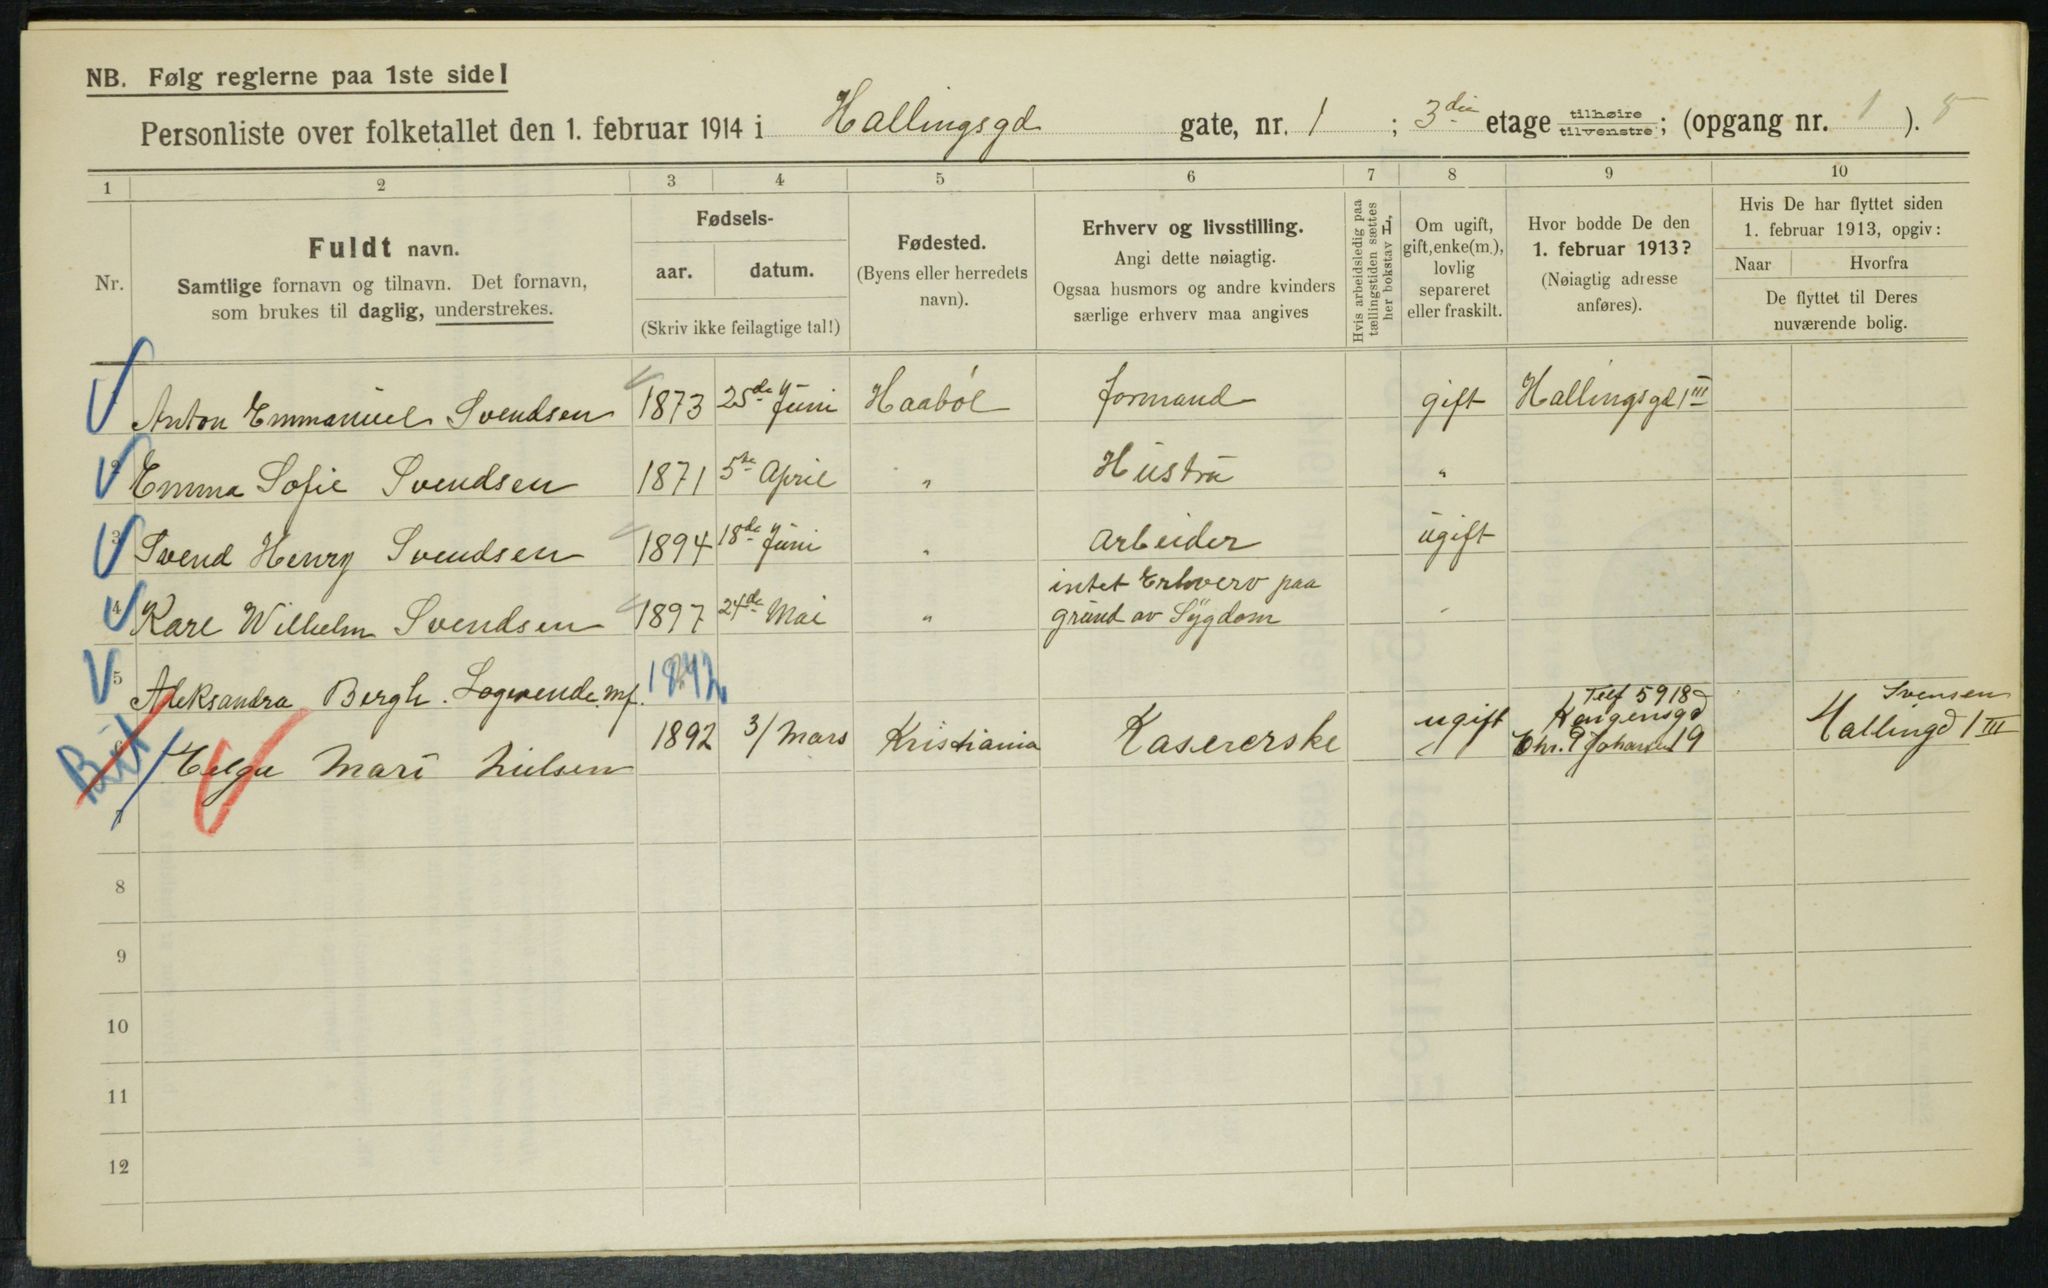 NB. Følg reglerne paa 1ste side!
Personliste over folketallet den 1. februar 1914 i Hallingsgd gate, nr. 1 ; 3die etage tilhøire tilvenstre; (opgang nr. 1 ).
1 2 3 4 5 6 7 8 9 10
Nr.
Fuldt navn.
Samtlige fornavn og tilnavn. Det fornavn,
som brukes til daglig, understrekes.
Fødsels-
aar. datum.
(Skriv ikke feilagtige tal!)
Fødested.
(Byens eller herredets
navn).
Erhverv og livsstilling.
Angi dette nøiagtig.
Ogsaa husmors og andre kvinders
særlige erhverv maa angives
Hvis arbeidsledig paa
tællingstiden sættes
her bokstav L.
Om ugift,
gift, enke(m.),
lovlig
separeret
eller fraskilt.
Hvor bodde De den
1. februar 1913?
(Nøiagtig adresse
anføres).
Hvis De har flyttet siden
1. februar 1913, opgiv:
Naar Hvorfra
De flyttet til Deres
nuværende bolig.
Anton Emmanuel Svendsen 1873 25de Juni Haabøl formand gift Hallingsgd 1 III
2 Emma Sofie Svendsen 1871 5te April " Hustru "
3 Svend Henry Svendsen 1894 18de Juni " Arbeider ugift
intet Erhverv paa
4 Karl Wilhelm Svendsen 1897 24de Mai " grund av Sygdom "
5 Aleksandra Bergh. Logerende. mf. 1842
Telf 5918
Kongensgd Svensen
6 Helga Mari Nielsen 1892 3/ Mars Kristiania Kasererske ugift Chr. Johansen 19 Hallingd 1 III
7
8
9
10
11
12